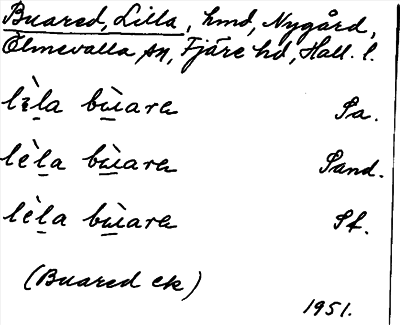 Buared, Lilla, hmd, Nygård,
Ölmevalla sn, Fjäre hd, Hall. l.
lèla bùara Sa.
lèla bùara Sand.
lèla bùara Sf.
(Buared ek)
1951.